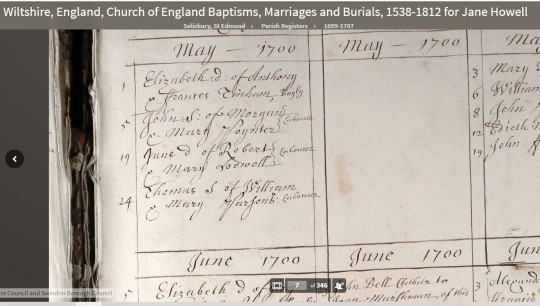 Wiltshire, England, Church of England Baptisms, Marriages and Burials, 1538-1812 for Jane Howell
Salisbury, St Edmund › Parish Registers › 1699-1767
May — 1700
1 Elizabeth d: of Anthony
& Frances Vinham, Bayly
5 John S: of Morgan
& Mary Poynter Labourer
19 Jane d of Robert Labourer
& Mary Howell
Thomas S of William
24 & Mary Parsons Labourer
June 1700
5 Elizabeth d of
May — 1700
June 1700
John Bell
of this
May
3 Mary
6 William
8 John
12 Edith
19 John
Jun
3 Alexand
re Council and Swindon Borough Council
7 of 346